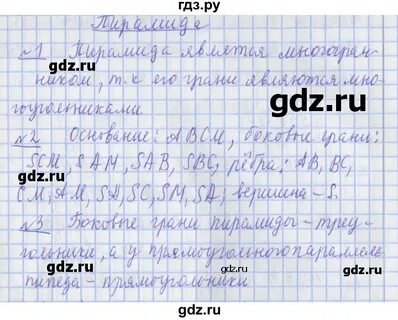 гдз.ру
Пирамида
№1 Пирамида является многогран-
ником, т.к его грани являются мно-
гоугольниками
gdz.ru gdz.ru
№2 Основание: ABCM, боковые грани:
SCM, SAM, SAB, SBC, рёбра: AB, BC,
CM, AM, SA, SC, SM, SA; вершина - S.
№3 Боковые грани пирамиды - треу-
гольники, а у прямоугольного параллеле
пипеда - прямоугольники
gdz.ru gdz.ru